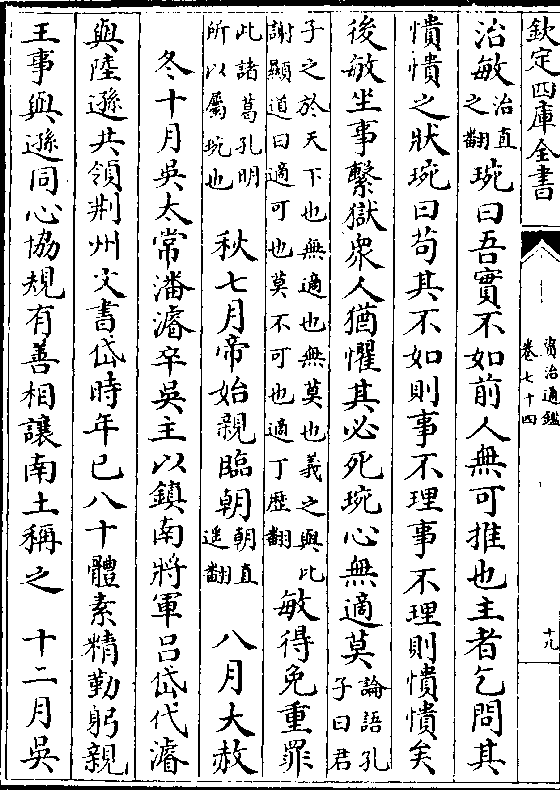 欽定四庫全書
資治通鑑
卷七十四
十九
治敏治直之翻琬曰吾實不如前人無可推也主者乞問其
憒憒之狀琬曰苟其不如則事不理事不理則憒憒矣
後敏坐事繫獄衆人猶懼其必死琬心無適莫論語孔子曰君
子之於天下也無適也無莫也義之與比謝顯道曰適可也莫不可也適丁歴翻敏得免重罪
此諸葛孔明所以屬琬也 秋七月帝始親臨朝朝直遥翻 八月大赦
冬十月吳太常潘濬卒吳主以鎮南將軍吕岱代濬
與陸遜共領荆州文書岱時年已八十體素精勤躬親
王事與遜同心協規有善相讓南土稱之 十二月吳